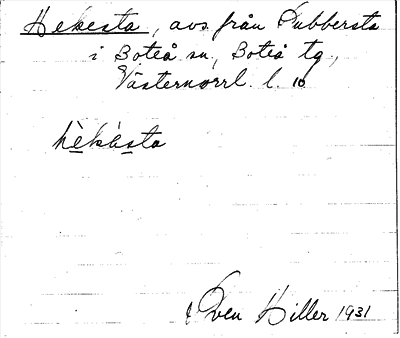 Hekesta, avs. från Subbersta
i Boteå sn, Boteå tg,
Västernorrl. l. 10
hèkàsta
Sven Hiller 1931